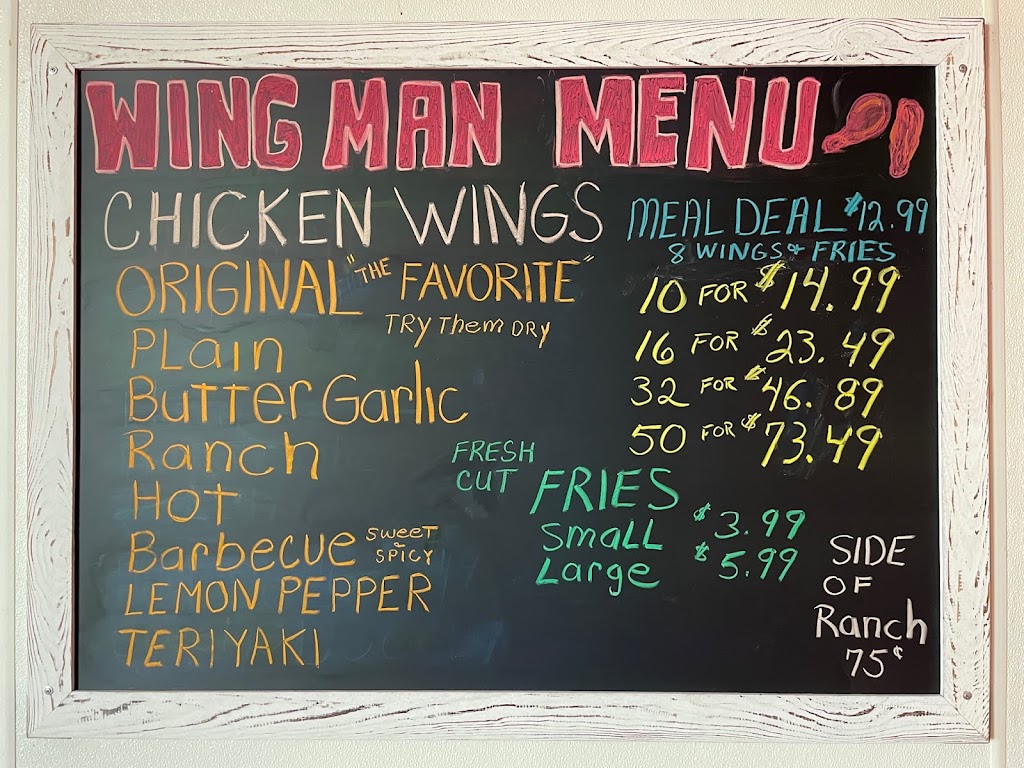 WING MAN MENU
CHICKEN WINGS
ORIGINAL "THE FAVORITE"
TRY Them DRY
PLain
Butter Garlic
Ranch
HOT
Barbecue SWEET & SPICY
LEMON PEPPER
TERIYAKI
MEAL DEAL $12.99
8 WINGS & FRIES
10 FOR $14.99
16 FOR $23.49
32 FOR $46.89
50 FOR $73.49
FRESH
CUT FRIES
Small $3.99
Large $5.99
SIDE
OF
Ranch
75¢